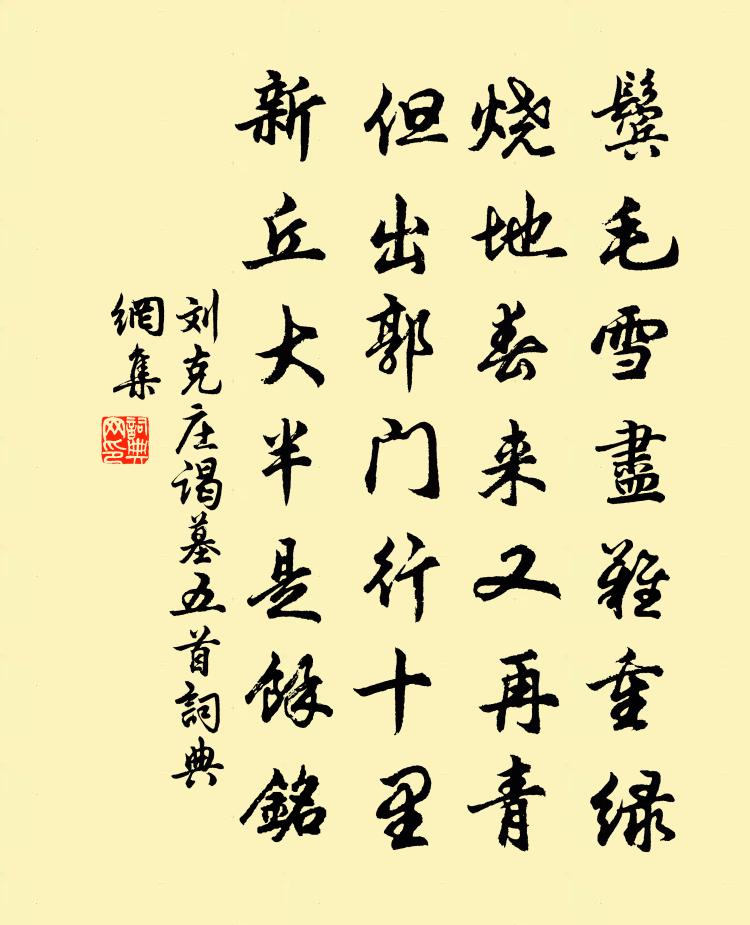 鬓毛雪盡難重绿
烧地春来又再青
但出郭门行十里
新丘大半是餘銘
刘克庄谒墓五首詞典
網集
詞典
网印